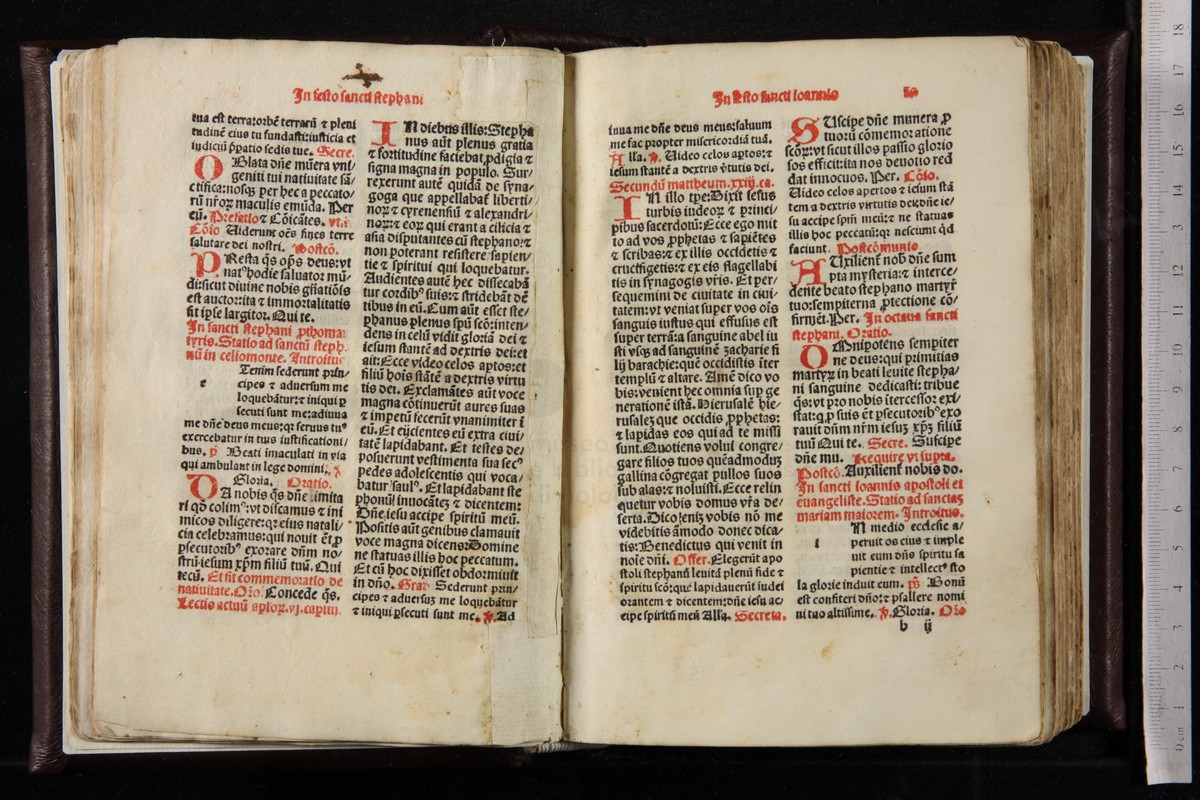 In festo sancti stephani
tua est terra:orbē terrarū ⁊ pleni
tudinē eius tu fundasti:iusticia et
iudiciū p̄patio sedis tue. Secre.
OBlata dn̄e mūera vni/
geniti tui natiuitate sā/
ctifica:nosq̄ʒ per hec a peccato/
rū nr̄oꝝ maculis emūda. Per
eū. Prefatio ⁊ Cōicātes. vt.s̄.
Cōio Uiderunt oēs fines terre
salutare dei nostri. Postcō.
PResta q̄s op̄s deus:vt
nat⁹ hodie saluator mū/
di:sicut diuine nobis gn̄atiōis
est auctor:ita ⁊ immortalitatis
sit ip̄e largitor. Qui te.
In sancti stephani ꝓthomar
tyris. Statio ad sanctū steph.
nū in celiomonte. Introitus
e
Tenim sederunt prin/
cipes ⁊ aduersum me
loquebātur:⁊ iniqui ꝑ
secuti sunt me:adiuua
me dn̄e deus meus:qꝛ seruus tu⁹
exercebatur in tuis iustificationi/
bus. p̄ Beati imaculati in via
qui ambulant in lege domini. ℣
Gloria. Oratio.
DA nobis q̄s dn̄e imita
ri qd̄ colim⁹:vt discamus ⁊ ini
micos diligere:qꝛ eius natali/
cia celebramus:qui nouit ēt ꝓ
ꝑsecutorib⁹ exorare dn̄m no/
strū iesum xp̄m filiū tuū. Qui
tecū. Et fit commemoratio de
natiuitate. Or̄o. Concede q̄s.
Lectio actuū aploꝝ. vj. capitu.
IN diebus illis:Stepha
nus aūt plenus gratia
⁊ fortitudine faciebat ꝓdigia ⁊
signa magna in populo. Sur/
rexerunt autē quidā de syna/
goga que appellabat̄ liberti/
noꝝ ⁊ cyrenensiū ⁊ alexandri/
noꝝ:⁊ eoꝝ qui erant a cilicia ⁊
asia disputantes cū stephano:⁊
non poterant resistere sapien/
tie ⁊ spiritui qui loquebatur.
Audientes autē hec dissecabā
tur cordib⁹ suis:⁊ stridebāt dē
tibus in eū. Cum aūt esset ste/
phanus plenus spū scō:inten/
dens in celū vidit gloriā dei ⁊
iesum stantē ad dextris dei:et
ait:Ecce video celos aptos:et
filiū hoīs stātē a dextris virtu
tis dei. Exclamātes aūt voce
magna cōtinuerūt aures suas
⁊ impetū fecerūt vnanimiter ī
eū. Et eijcientes eū extra ciui/
tatē lapidabant. Et testes de/
posuerunt vestimenta sua sec⁹
pedes adolescentis qui voca/
batur saul⁹. Et lapidabant ste
phonū inuocāteʒ ⁊ dicentem:
Dn̄e iesu accipe spiritū meū.
Positis aūt genibus clamauit
voce magna dicens:Domine
ne statuas illis hoc peccatum.
Et cū hoc dixisset obdormiuit
in dn̄o. Grad̄ Sederunt prin/
cipes ⁊ aduersuʒ me loquebātur
⁊ iniqui ꝑsecuti sunt me. ℣. Ad
In festo sancti ioannis
iuua me dn̄e deus meus:saluum
me fac propter misericordiā tuā.
Alla. ℣. Uideo celos aptos:⁊
iesum stantē a dextris v̄tutis dei.
Secundū mattheum. xxiij. ca.
IN illo tp̄e:Dixit iesus
turbis iudeoꝝ ⁊ princi/
pibus sacerdotū:Ecce ego mit
to ad vos ꝓphetas ⁊ sapiētes
⁊ scribas:⁊ ex illis occidetis ⁊
crucifigetis:⁊ ex eis flagellabi
tis in synagogis vr̄is. Et per/
sequemini de ciuitate in ciui/
tatem:vt veniat super vos oīs
sanguis iustus qui effusus est
super terrā:a sanguine abel iu
sti vsqʒ ad sanguinē zacharie fi
lij barachie:quē occidistis īter
templū ⁊ altare. Amē dico vo
bis:venient hec omnia sup ge
nerationē istā. Hierusalē hie/
rusaleʒ que occidis ꝓphetas:
⁊ lapidas eos qui ad te missi
sunt. Quotiens volui congre/
gare filios tuos quēadmoduʒ
gallina cōgregat pullos suos
sub alas:⁊ noluisti. Ecce relin
quetur vobis domus vr̄a de/
serta. Dico eniʒ vobis nō me
videbitis āmodo donec dica/
tis:Benedictus qui venit in
noīe dn̄i. Offer. Elegerūt apo
stoli stephanū leuitā plenū fide ⁊
spiritu scō:quē lapidauerūt iudei
orantem ⁊ dicentem:dn̄e iesu ac/
cipe spiritū meū Alla. Secreta.
SUscipe dn̄e munera ꝓ
tuorū cōmemoratione
scōꝝ:vt sicut illos passio glorio
sos effecit:ita nos deuotio red
dat innocuos. Per. Cōio.
Uideo celos apertos ⁊ iesum stā
tem a dextris virtutis dei:dn̄e ie/
su accipe spm̄ meū:⁊ ne statuas
illis hoc peccatū:qꝛ nesciunt qd̄
faciunt. Postcōmunio
AUxilient̄ nob̄ dn̄e sum
pta mysteria:⁊ interce/
dente beato stephano martyr̄
tuo:sempiterna ꝓtectione cō/
firmēt. Per. In octaua sancti
stephani. Oratio.
OMnipotens sempiter
ne deus:qui primitias
martyꝝ in beati leuite stepha/
ni sanguine dedicasti:tribue
q̄s:vt pro nobis ītercessor exi
stat:q ꝓ suis ēt ꝑsecutorib⁹ exo
rauit dn̄m nr̄m iesuʒ xp̄ʒ filiū
tuū Qui te. Secre. Suscipe
dn̄e mu. Require vt supra.
Postcō. Auxilient̄ nobis do.
In sancti ioannis apostoli et
euangeliste. Statio ad sanctaʒ
mariam maiorem. Introitus.
i
N medio ecclesie a/
peruit os eius ⁊ imple
uit eum dn̄s spiritu sa
pientie ⁊ intellect⁹ sto
la glorie induit eum. p̄s Bonū
est confiteri dn̄o:⁊ psallere nomi
ni tuo altissime. ℣. Gloria. Or̄o
b ij